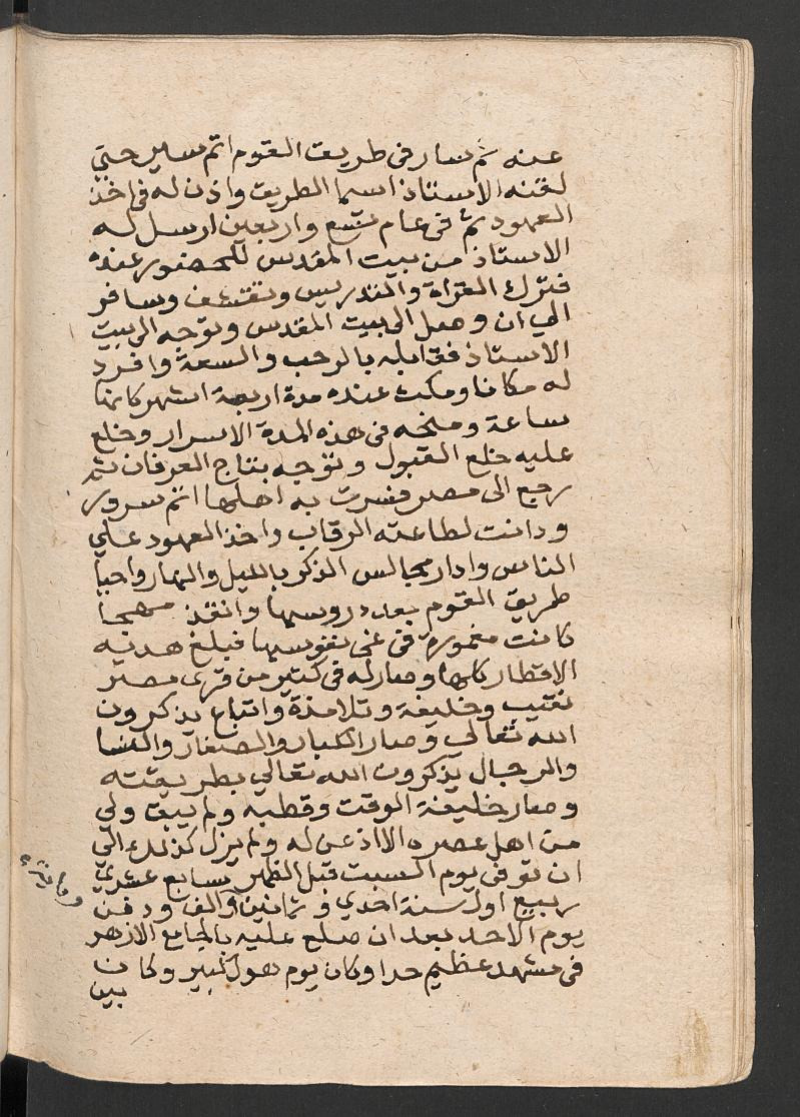 عنه ثم سار فى طريق القوم اتم سير حتي
لقنه الاستاذ اسما الطريق واذن له فى اخذ
العهود ثم فى عام تسع واربعين ارسل له
الاستاذ من بيت المقدس للحضور عنده
فترك القراة والتدريس وتقشف وسافر
الي ان وصل الى بيت المقدس وتوجه الى بيت
الاستاذ فقابله بالرحب والسعة وافرد
له مكانا ومكث عنده مدة اربعة اشهر كانها
ساعة ومنحه فى هذه المدة الاسرار وخلع
عليه خلع القبول وتوجه بتاج العرفان ثم
رجع الى مصر فسرت به اهلها اتم سرور
ودانت لطاعته الرقاب واخذ العهود علي
الناس وادار مجالس الذكر بالليل والنهار واحيا
طريق القوم بعد دروسها وانقذ مهجا
كانت مغمورة فى غى نفوسها فبلغ هديه
الاقطار كلها وصار له فى كثير من قرى مصر
نقيب وخليفة وتلامذة واتباع يذكرون
الله تعالى وصار الكبار والصغار والنسا
والرجال يذكرون الله تعالي بطريقته
وصار خليفة الوقت وقطبه ولم يبق ولي
من اهل عصره الا اذعن له ولم يزل كذلك الى
ان توفى يوم السبت قبل الظهر سابع عشري
ربيع اول سنة احدي وثمانين والف ودفن
يوم الاحد بعد ان صلع عليه بالجامع الازهر
فى مشهد عظيم جدا وكان يوم هول كبير وكان
بين